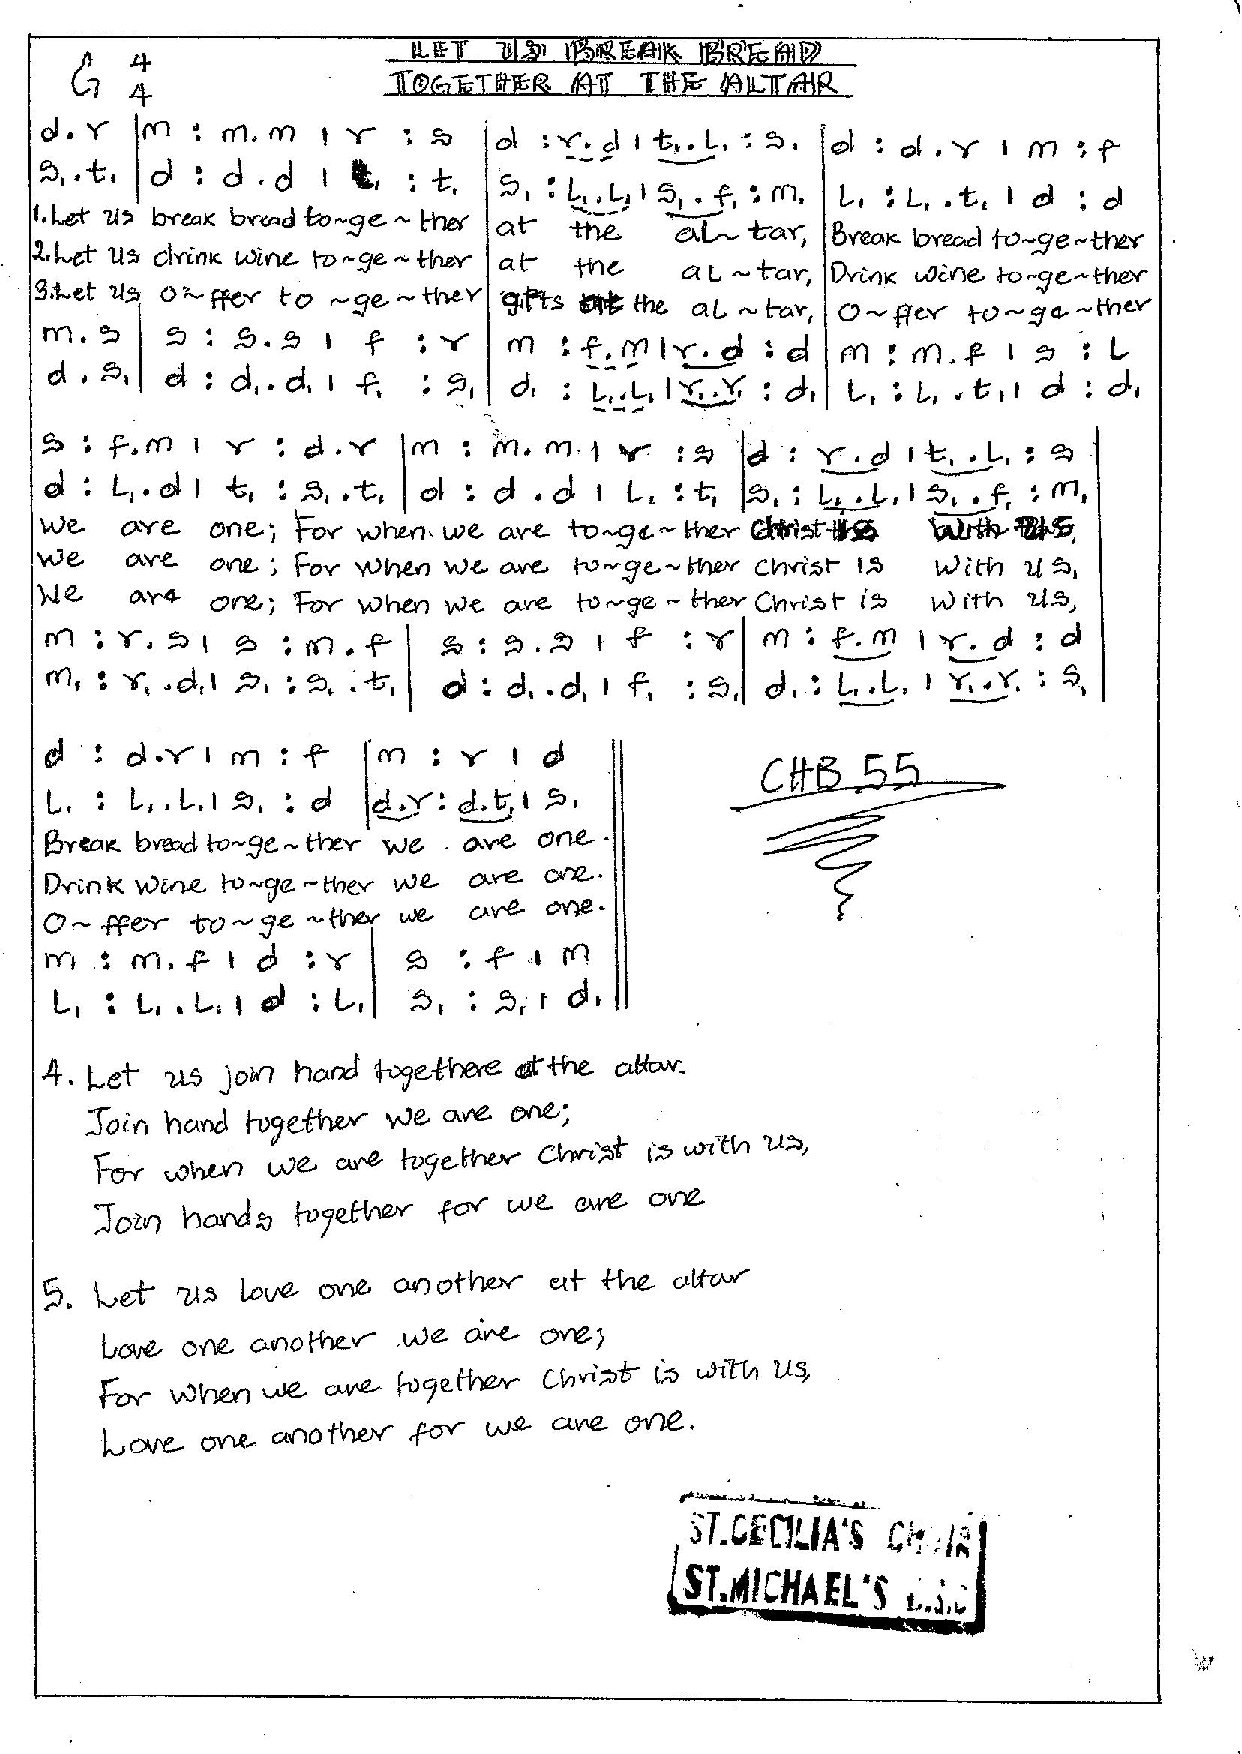 LET US BREAK BREAD
TOGETHER AT THE ALTAR
G 4/4
d.r | m : m.m | r : s | d : r.d | t₁.L₁ : s₁ | d : d.r | m : f
s₁.t₁ | d : d.d | t₁ : t₁ | s₁ : L₁.L₁ | s₁.f₁ : m₁ | L₁ : L₁.t₁ | d : d
1. Let us break bread to~ge~ther at the aL~tar, Break bread to~ge~ther
2. Let us drink wine to~ge~ther at the aL~tar, Drink wine to~ge~ther
3. Let us O~ffer to~ge~ther gifts at the aL~tar, O~ffer to~ge~ther
m.s | s : s.s | f : r | m : f.m | r.d : d | m : m.f | s : L
d.s₁ | d : d₁.d₁ | f₁ : s₁ | d₁ : L₁.L₁ | r₁.r₁ : d₁ | L₁ : L₁.t₁ | d : d₁
s : f.m | r : d.r | m : m.m | r : s | d : r.d | t₁.L₁ : s
d : L₁.d | t₁ : s₁.t₁ | d : d.d | L₁ : t₁ | s₁ : L₁.L₁ | s₁.f₁ : m₁
We are one; For when we are to~ge~ther Christ is with us,
We are one; For when we are to~ge~ther Christ is with us,
We are one; For when we are to~ge~ther Christ is with us,
m : r.s | s : m.f | s : s.s | f : r | m : f.m | r.d : d
m₁ : r₁.d₁ | s₁ : s₁.t₁ | d : d₁.d₁ | f₁ : s₁ | d₁ : L₁.L₁ | r₁.r₁ : s₁
d : d.r | m : f | m : r | d
L₁ : L₁.L₁ | s₁ : d | d.r : d.t₁ | s₁
CHB 55
Break bread to~ge~ther we are one.
Drink wine to~ge~ther we are one.
O~ffer to~ge~ther we are one.
m : m.f | d : r | s : f | m
L₁ : L₁.L₁ | d : L₁ | s₁ : s₁ | d₁
4. Let us join hand togethere at the altar.
Join hand together we are one;
For when we are together Christ is with us,
Join hands together for we are one
5. Let us love one another at the altar
Love one another we are one;
For when we are together Christ is with us,
Love one another for we are one.
ST.CECILIA'S
ST.MICHAEL'S